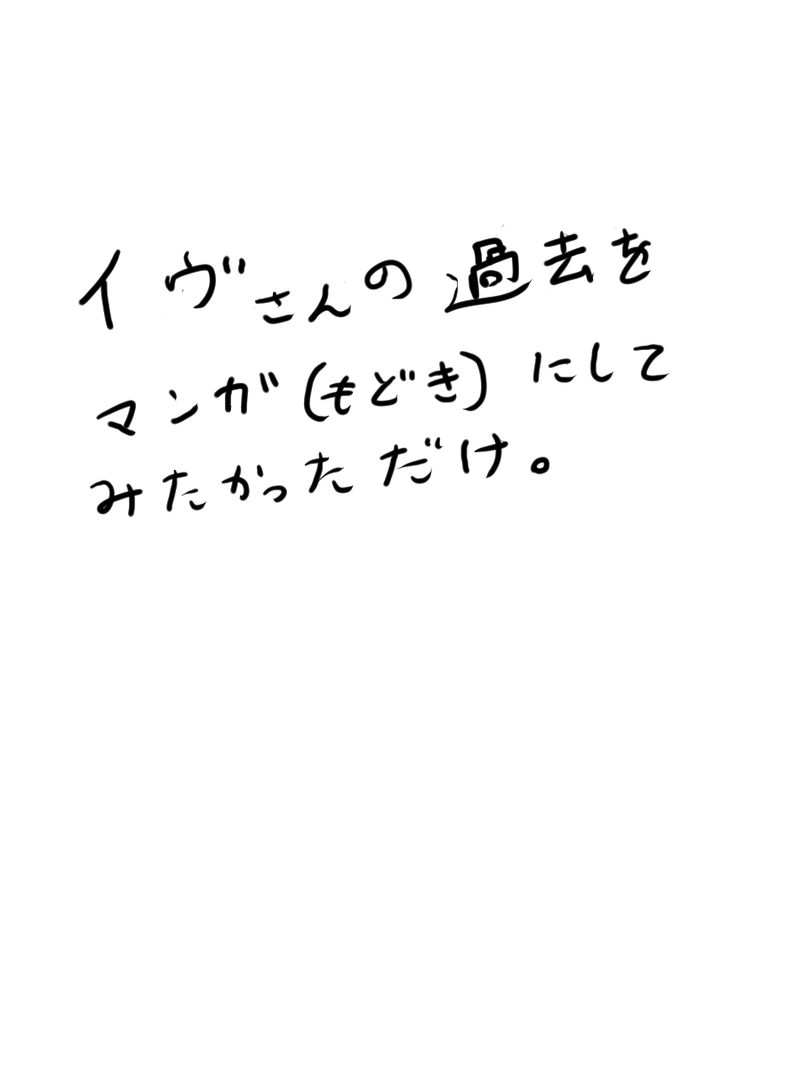 イヴさんの過去を
マンガ(もどき)にして
みたかっただけ。